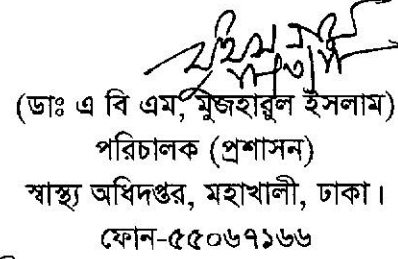 (ডাঃ এ বি এম, মুজহারুল ইসলাম)
পরিচালক (প্রশাসন)
স্বাস্থ্য অধিদপ্তর, মহাখালী, ঢাকা।
ফোন-৫৫০৬৭১৬৬